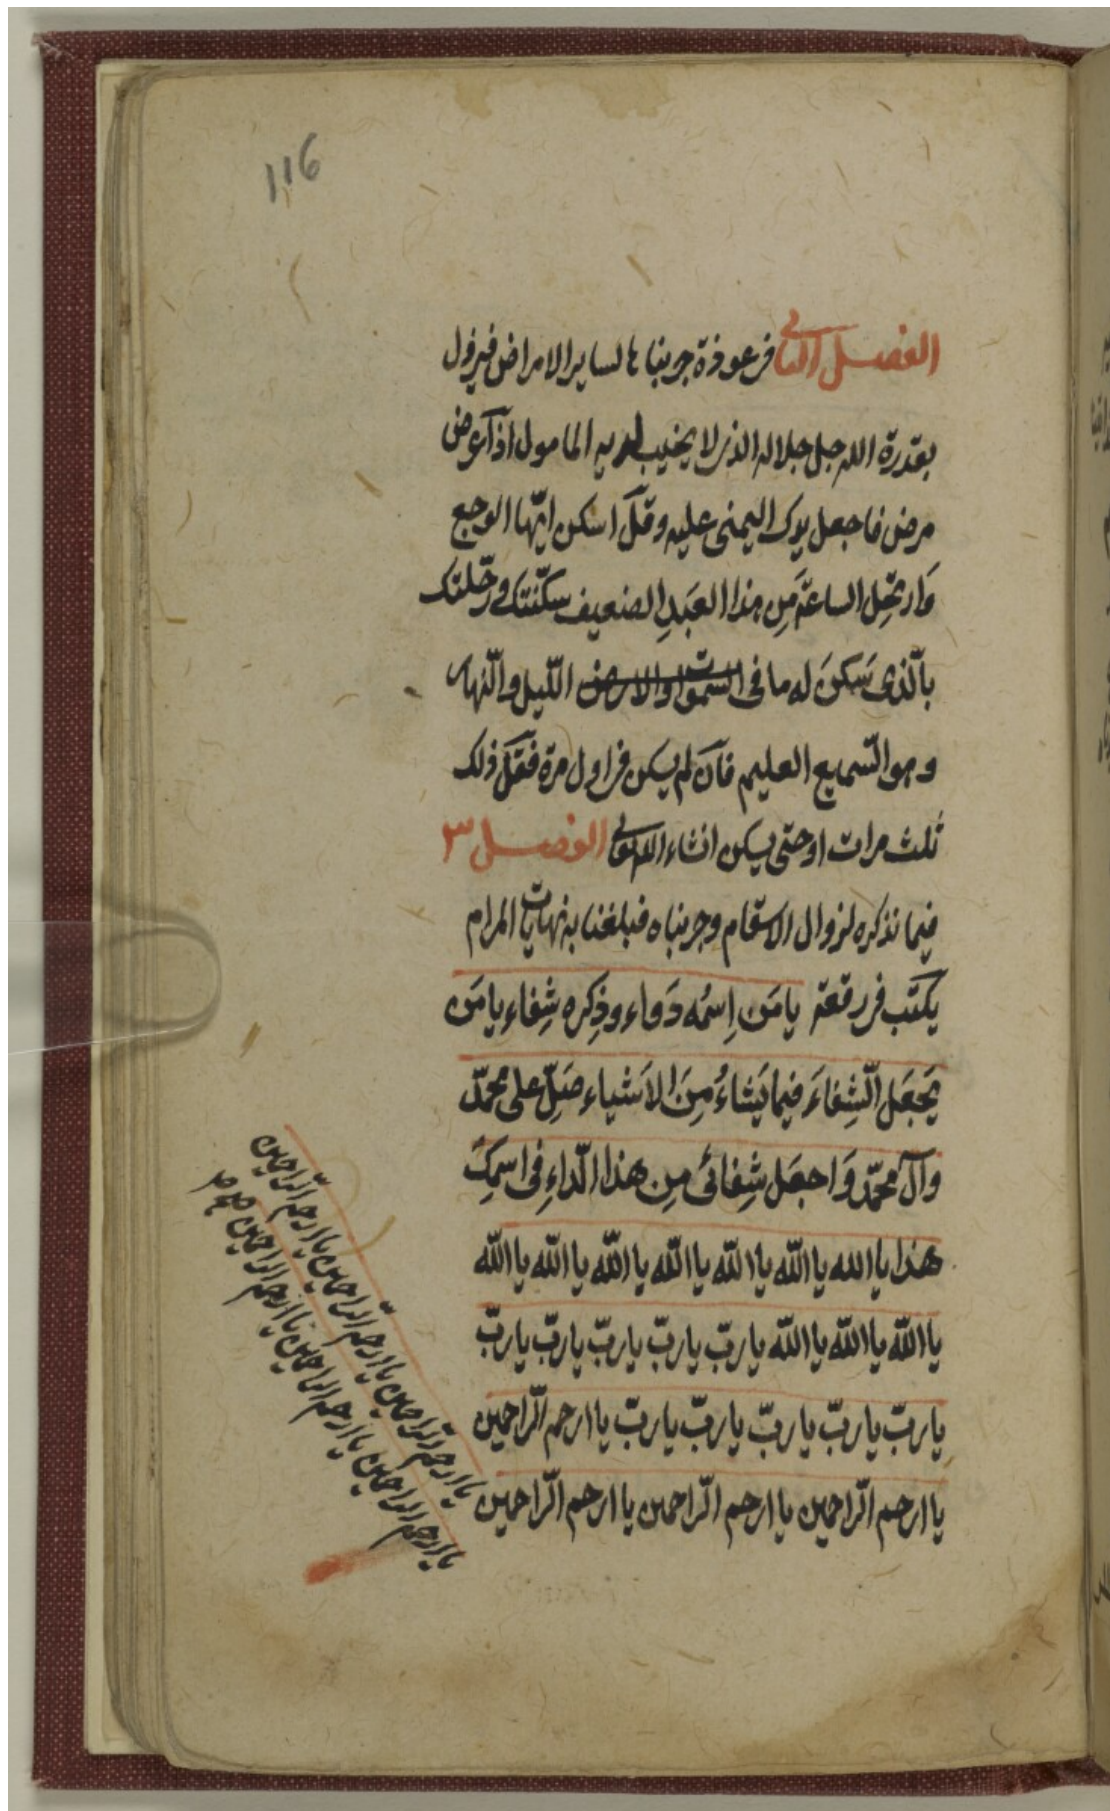 116
الفصل الثانى فى عوذة جربناها لساير الامراض فيزول
بقدرة الله جل جلاله الذى لا يخيب لديه المامول اذا عرض
مرض فاجعل يدك اليمنى عليه وقل اسكن ايّها الوجع
وَارتحِل الساعة مِن هذا العَبدِ الضعيف سكّنتك ورحّلتك
بالّذى سَكنَ له ما فى السموات والارض اللّيل والنّهار
وهو السّميع العليم فان لم يسكن فى اول مرة فقل ذلك
ثلث مرات او حتى يسكن انشاء الله تعالى الفصل ٣
فيما نذكره لزوال الاسقام وجربناه فبلغنا به نهايات المرام
يكتب فى رقعة يا مَن اِسمُه دَواء وذِكره شِفاء يا مَن
يَجعَل الشِّفاءَ فيما يَشاءُ مِنَ الاَشياء صَلِّ على محمّد
وآل محمّد وَاجعَل شِفائى مِن هذا الدّاءِ فى اسمِكَ
هذا يا الله يا اللّه يا اللّه يا اللّه يا اللّه يا اللّه يا اللّه
يا اللّه يا اللّه يا اللّه يا ربّ يا ربّ يا ربّ يا ربّ يا ربّ
يا ربّ يا ربّ يا ربّ يا ربّ يا ربّ يا ارحم الرّاحمين
يا ارحم الرّاحمين يا ارحم الرّاحمين يا ارحم الرّاحمين
يا ارحم الرّاحمين يا ارحم الرّاحمين يا ارحم الرّاحمين
يا ارحم الراحمين يا ارحم الراحمين يا ارحم الراحمين